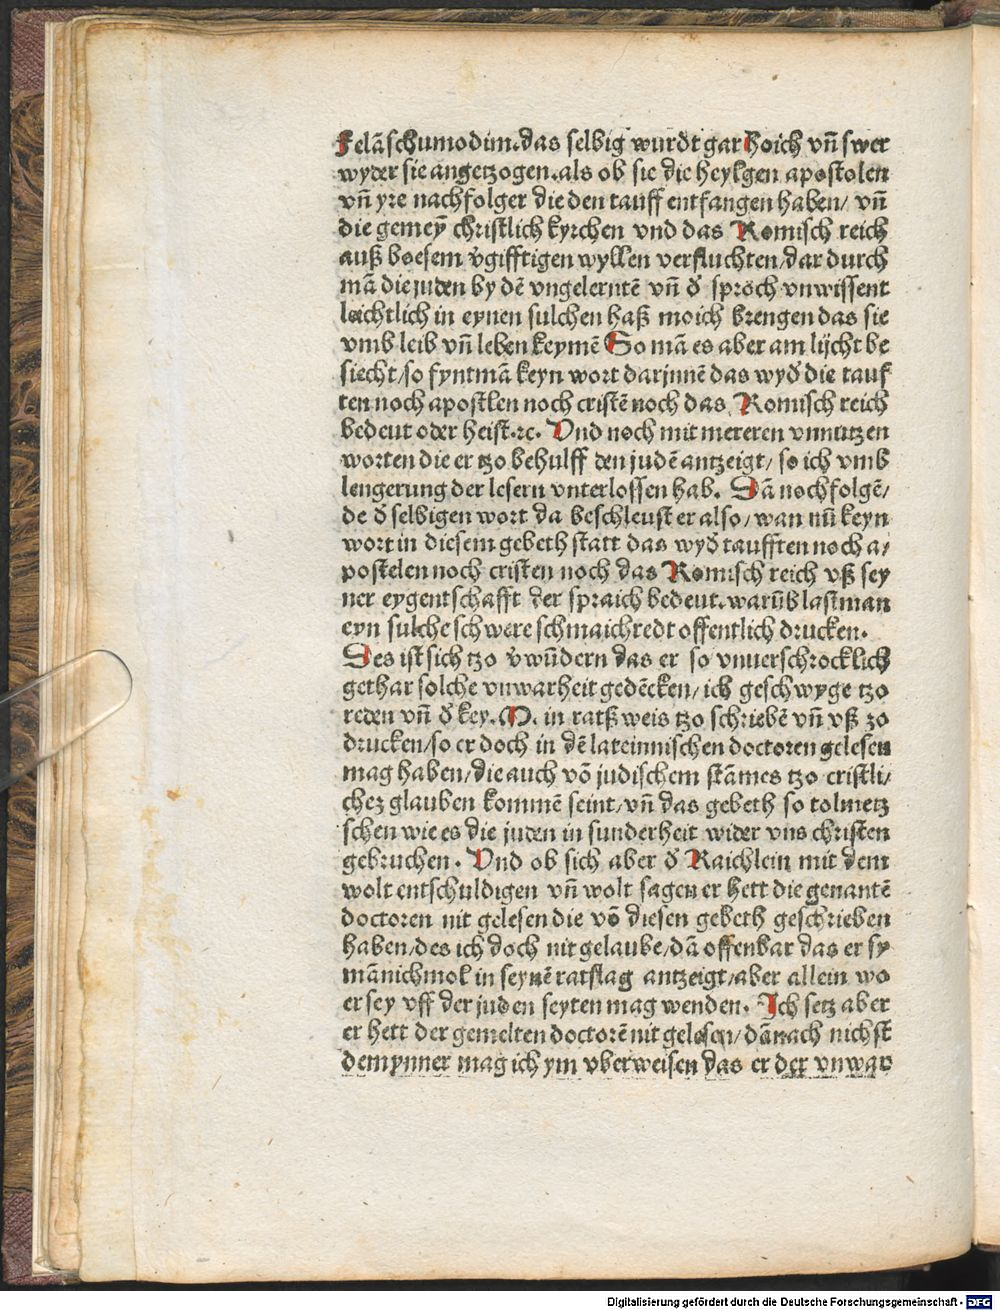 Felãschumodim.das selbig wurdt gar hoich vñ swer
wyder sie angetzogen.als ob sie die heylgen apostolen
vñ yre nachfolger die den tauff entfangen haben/ vñ
die gemeỹ christlich kyrchen vnd das Romisch reich
auß boesem v̾gifftigen wyllen verfluchten/dar durch
mã die juden by dẽ vngelerntẽ vñ d̾ sproch vnwissent
leichtlich in eynen sulchen haß moich brengen das sie
vmb leib vñ leben keymẽ So mã es aber am lijcht be
siecht/so fyntmã keyn wort darjnnẽ das wyd̾ die tauf
ten noch apostlen noch cristẽ noch das Romisch reich
bedeut oder heist.ꝛc. Vnd noch mit mereren vnnutzen
worten die er tzo behulff den judẽ antzeigt/ so ich vmb
lengerung der lesern vnterlossen hab. Dã nochfolgẽ/
de d̾ selbigen wort da beschleust er also/wan nũ keyn
wort in diesem gebeth statt das wyd̾ taufften noch a/
postelen noch cristen noch das Romisch reich vß sey
ner eygentschafft der spraich bedeut.warũb lastman
eyn sulche schwere schmaichredt offentlich drucken.
Des ist sich tzo v̾wũdern das er so vnuerschrocklich
gethar solche vnwarheit gedẽcken/ich geschwyge tzo
reden vñ d̾ key.M. in ratß weis tzo schriebẽ vñ vß zo
drucken/so er doch in dẽ lateinnischen doctoren gelesen
mag haben/die auch võ judischem stãmes tzo cristli/
chez glauben kommẽ seint/vñ das gebeth so tolmetz
schen wie es die juden in sunderheit wider vns christen
gebruchen. Vnd ob sich aber d̾ Raichlein mit dem
wolt entschuldigen vñ wolt sagen er hett die genantẽ
doctoren nit gelesen die võ diesen gebeth geschrieben
haben/des ich doch nit gelaube/dã offenbar das er sy
mãnichmol in seynẽ ratslag antzeigt/aber allein wo
er sey vff der juden seyten mag wenden. Ich setz aber
er hett der gemelten doctorẽ nit gelesen/dãnach nichst
demynner mag ich ym vberweisen das er der vnwar
Digitalisierung gefördert durch die Deutsche Forschungsgemeinschaft - DFG